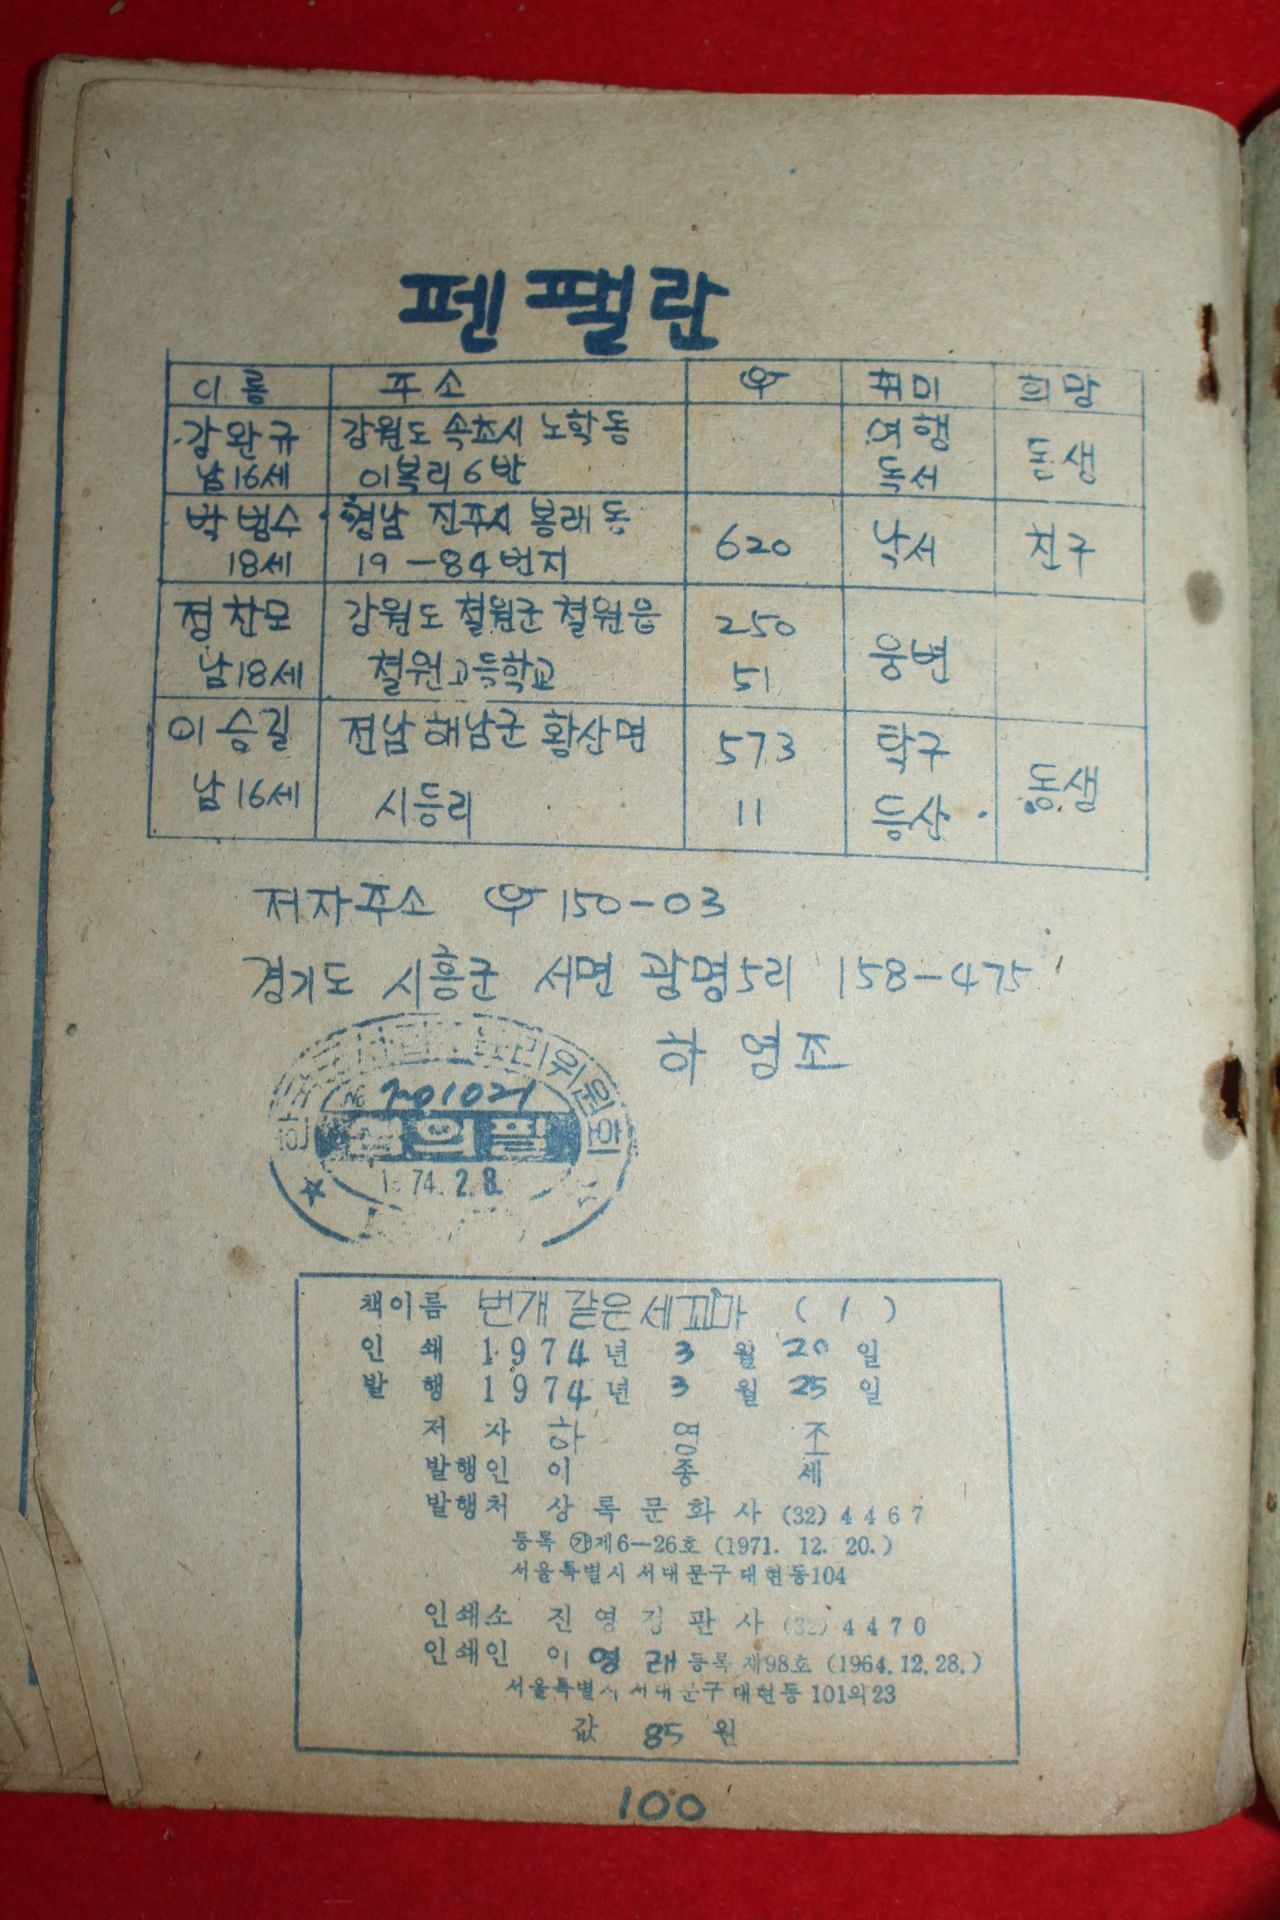 펜팰란
이름 주소 우 취미 희망
강완규 강원도 속초시 노학동 여행 동생
남16세 이복리 6반 독서
박범수 경남 진주시 봉래동 620 낙서 친구
18세 19-84번지
정찬모 강원도 철원군 철원읍 250 웅변
남18세 철원고등학교 51
이승길 전남 해남군 황산면 573 탁구 동생
남16세 시등리 11 등산
저자주소 우150-03
경기도 시흥군 서면 광명5리 158-475
하영조
위원회
심의필
74.2.8.
책이름 번개 같은 세꼬마 (1)
인쇄 1974년 3월 20일
발행 1974년 3월 25일
저자 하영조
발행인 이종세
발행처 상록문화사 (32) 4467
등록 ㉮제6-26호 (1971. 12. 20.)
서울특별시 서대문구 대현동104
인쇄소 진영김판사 (32) 4470
인쇄인 이영래 등록 제98호 (1964.12.28.)
서울특별시 서대문구 대현동 101의23
값 85 원
100